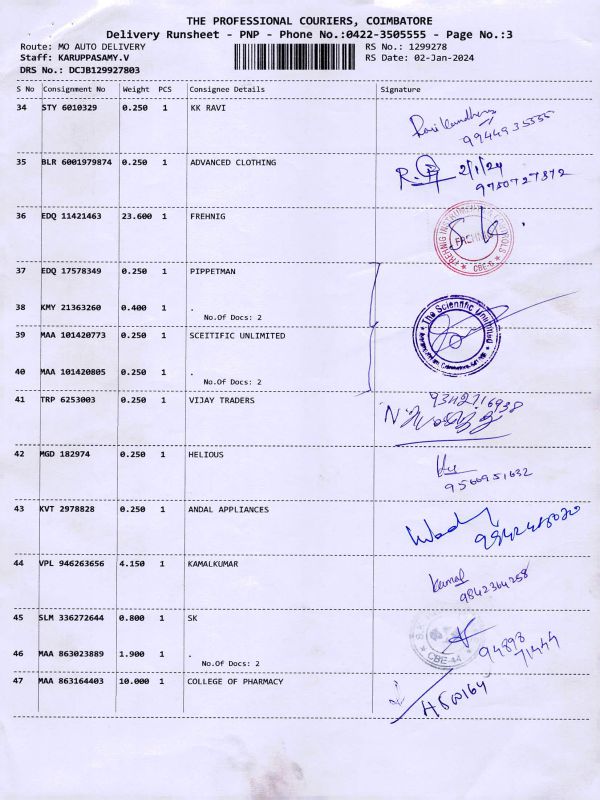 THE PROFESSIONAL COURIERS, COIMBATORE
Delivery Runsheet - PNP - Phone No.:0422-3505555 - Page No.:3
Route: MO AUTO DELIVERY RS No.: 1299278
Staff: KARUPPASAMY.V RS Date: 02-Jan-2024
DRS No.: DCJB129927803
S No Consignment No Weight PCS Consignee Details Signature
34 STY 6010329 0.250 1 KK RAVI
9944935555
35 BLR 6001979874 0.250 1 ADVANCED CLOTHING R. 2/1/24
9750727372
36 EDQ 11421463 23.600 1 FREHNIG FREHNIG CBE-6
37 EDQ 17578349 0.250 1 PIPPETMAN
38 KMY 21363260 0.400 1 . The Scientific Unlimited
No.Of Docs: 2
39 MAA 101420773 0.250 1 SCEITIFIC UNLIMITED
40 MAA 101420805 0.250 1 .
No.Of Docs: 2
41 TRP 6253003 0.250 1 VIJAY TRADERS 9342716938
42 MGD 182974 0.250 1 HELIOUS
9566951632
43 KVT 2978828 0.250 1 ANDAL APPLIANCES
44 VPL 946263656 4.150 1 KAMALKUMAR Kamal
9842364258
45 SLM 336272644 0.800 1 SK
46 MAA 863023889 1.900 1 . CBE-4A 94898
71444
No.Of Docs: 2
47 MAA 863164403 10.000 1 COLLEGE OF PHARMACY